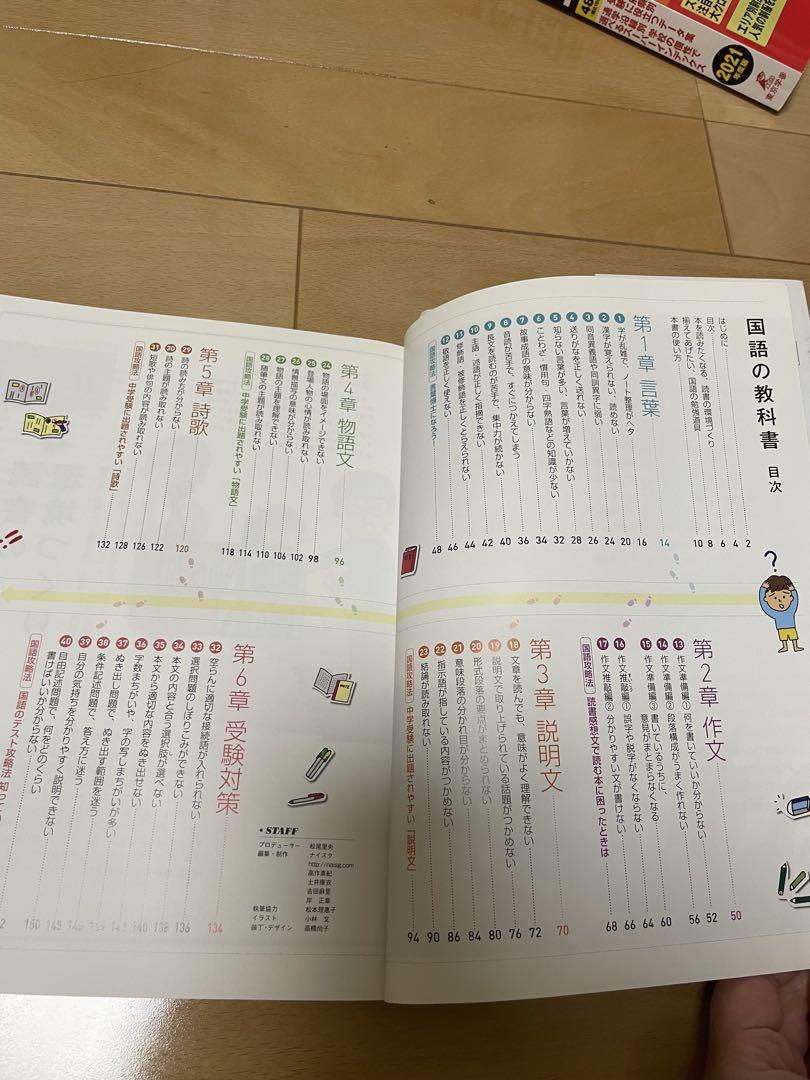 国語の教科書 目次
はじめに 2
目次 4
本を読みたくなる、読書の環境づくり 6
揃えてあげたい、国語の勉強道具 8
本書の使い方 10
第1章 言葉 14
1 字が乱雑で、ノート整理がヘタ 16
2 漢字が覚えられない、読めない 20
3 同音異義語や同訓異字に弱い 24
4 送りがなを正しく送れない 26
5 知らない言葉が多い、言葉が増えていかない 28
6 ことわざ・慣用句・四字熟語などの知識が少ない 32
7 故事成語の意味が分からない 34
8 音読が苦手で、すぐにつかえてしまう 36
9 長文を読むのが苦手で、集中力が続かない 40
10 主語・述語が正しく指摘できない 42
11 修飾語、被修飾語を正しくとらえられない 44
12 敬語を正しく使えない 46
国語攻略法 言葉博士になろう! 48
第2章 作文 50
13 作文準備編① 何を書いていいか分からない 52
14 作文準備編② 段落構成がうまく作れない 56
15 作文準備編③ 書いているうちに、意見がまとまらなくなる 60
16 作文推敲編① 誤字や脱字がなくならない 64
17 作文推敲編② 分かりやすい文が書けない 66
国語攻略法 読書感想文で読む本に困ったときは 68
第3章 説明文 70
18 文章を読んでも、意味がよく理解できない 72
19 説明文で取り上げられている話題がつかめない 76
20 形式段落の要点がまとめられない 80
21 意味段落の分かれ目が分からない 84
22 指示語が指している内容がつかめない 86
23 結論が読み取れない 90
国語攻略法 中学受験に出題されやすい「説明文」 94
第4章 物語文 96
24 物語の場面をイメージできない 98
25 登場人物の心情が読み取れない 102
26 情景描写の意味が分からない 106
27 物語の主題を理解できない 110
28 随筆文の主題が読み取れない 114
国語攻略法 中学受験に出題されやすい「物語文」 118
第5章 詩歌 120
29 詩の読み方が分からない 122
30 詩の主題が読み取れない 126
31 短歌や俳句の内容が読み取れない 128
国語攻略法 中学受験に出題されやすい「詩歌」 132
第6章 受験対策 134
32 空らんに適切な接続語が入れられない 136
33 選択問題のしぼりこみができない 138
34 本文の内容と合う選択肢が選べない 140
35 本文から適切な内容をぬき出せない
36 字数まちがいや、字の写しまちがいが多い
37 ぬき出し問題で、ぬき出す範囲を迷う
38 条件記述問題で、答え方に迷う
39 自分の気持ちを分かりやすく説明できない
40 自由記述問題で、何をどのくらい書けばいいか分からない 150
国語攻略法 国語のテスト攻略法
• STAFF
プロデューサー 松尾里央
編集・制作 ナイスク
http://naisg.com
高作真紀
土井優衣
吉田麻里
岸 正章
執筆協力 松本理惠子
イラスト 小林 文
装丁・デザイン 高橋尚子
?
2021年度版
東京学参